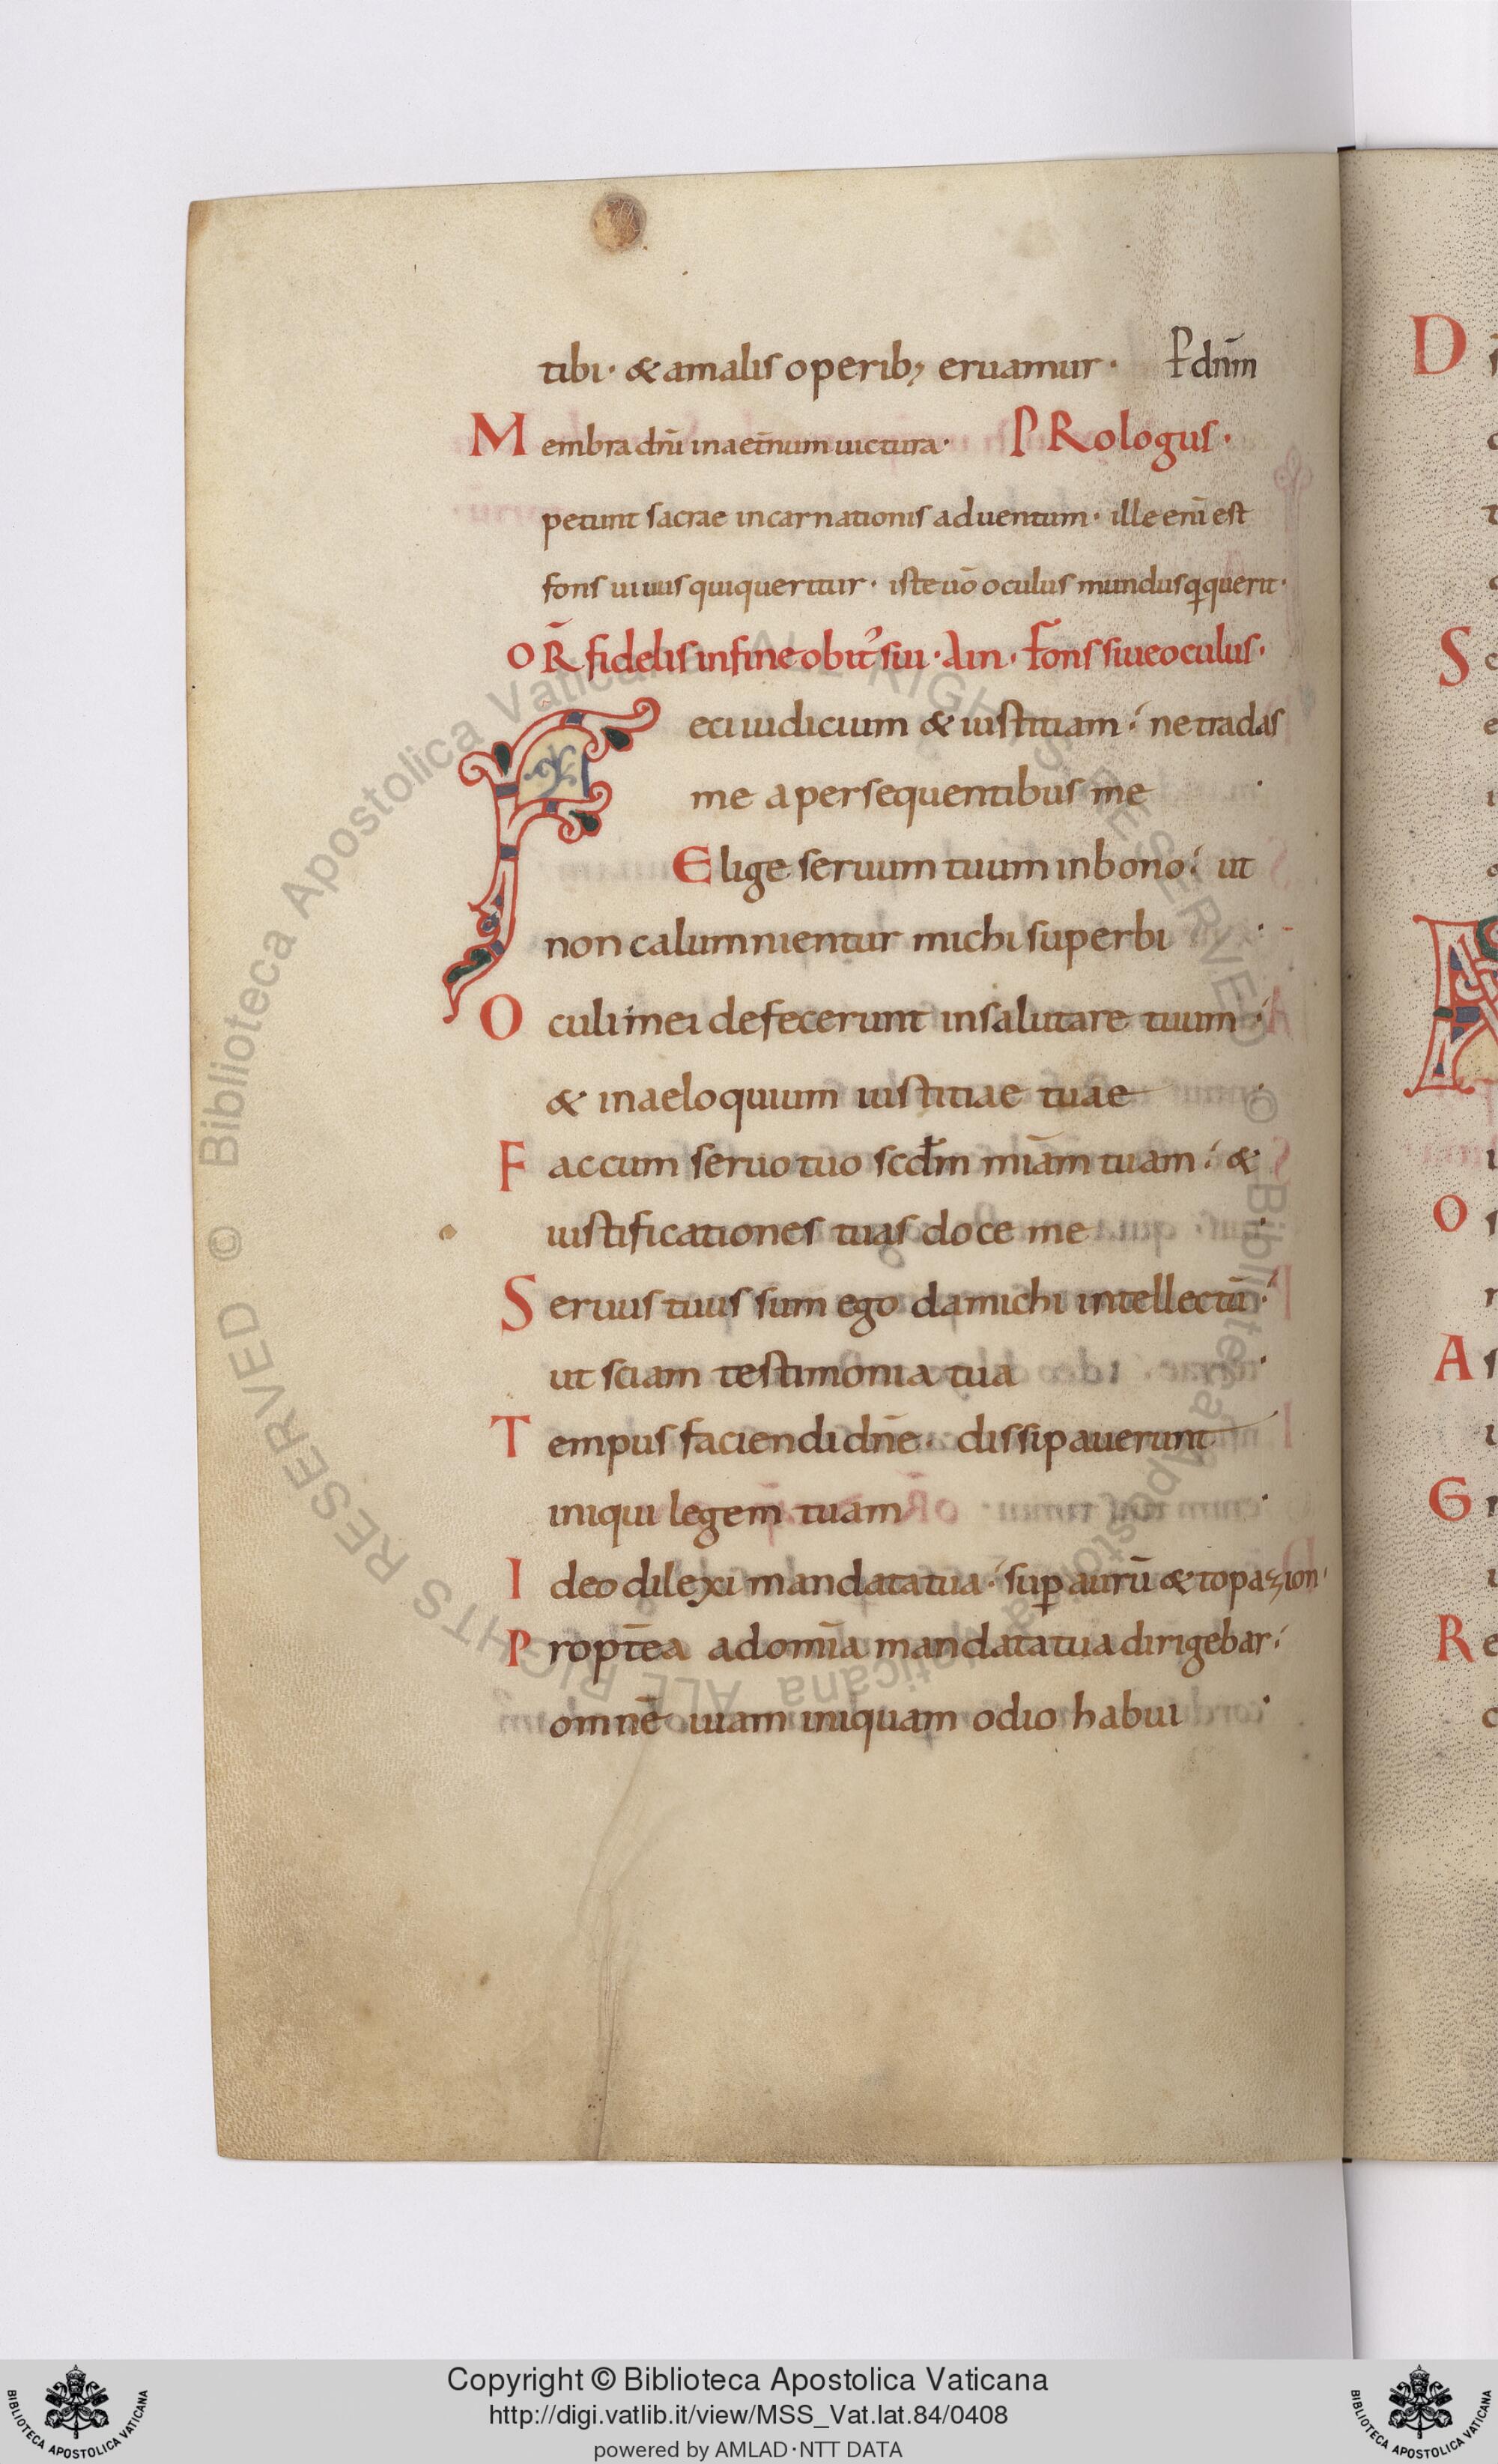 tibi· & amalis operib; eruamur· P̄ dnm̄
Membra dn̄i inaet̄num uictura· PRologus·
petunt sacrae incarnationis aduentum· ille eni̅ est
fons uiuus quiqueritur· iste uō oculus mundus qꝗuerit·
OR̄ fidelis infine obit᾽ sui· Ain· fons siue oculus·
Feci iudicium & iustitiam; ne tradas
me apersequentibus me
Elige seruum tuum inbono; ut
non calumnientur michi superbi
Oculi mei defecerunt insalutare tuum;
& inaeloquium iustitiae tuae
Fac cum seruo tuo scdm̄ miām tuam; &
iustificationes tuas doce me
Seruus tuus sum ego damichi intellectū;
ut sciam testimonia tua
Tempus faciendi dn̄e· dissipauerunt
iniqui legem tuam
Ideo dilexi mandata tua; sup̱ aurū & topazion·
Propt̄ea adomīa mandata tua dirigebar;
omnē uiam iniquam odio habui
D
S
O
A
G
R
© Biblioteca Apostolica Vaticana ALL RIGHTS RESERVED
© Biblioteca Apostolica Vaticana ALL RIGHTS RESERVED
Copyright © Biblioteca Apostolica Vaticana
http://digi.vatlib.it/view/MSS_Vat.lat.84/0408
powered by AMLAD·NTT DATA
BIBLIOTECA APOSTOLICA VATICANA
BIBLIOTECA APOSTOLICA VATICANA